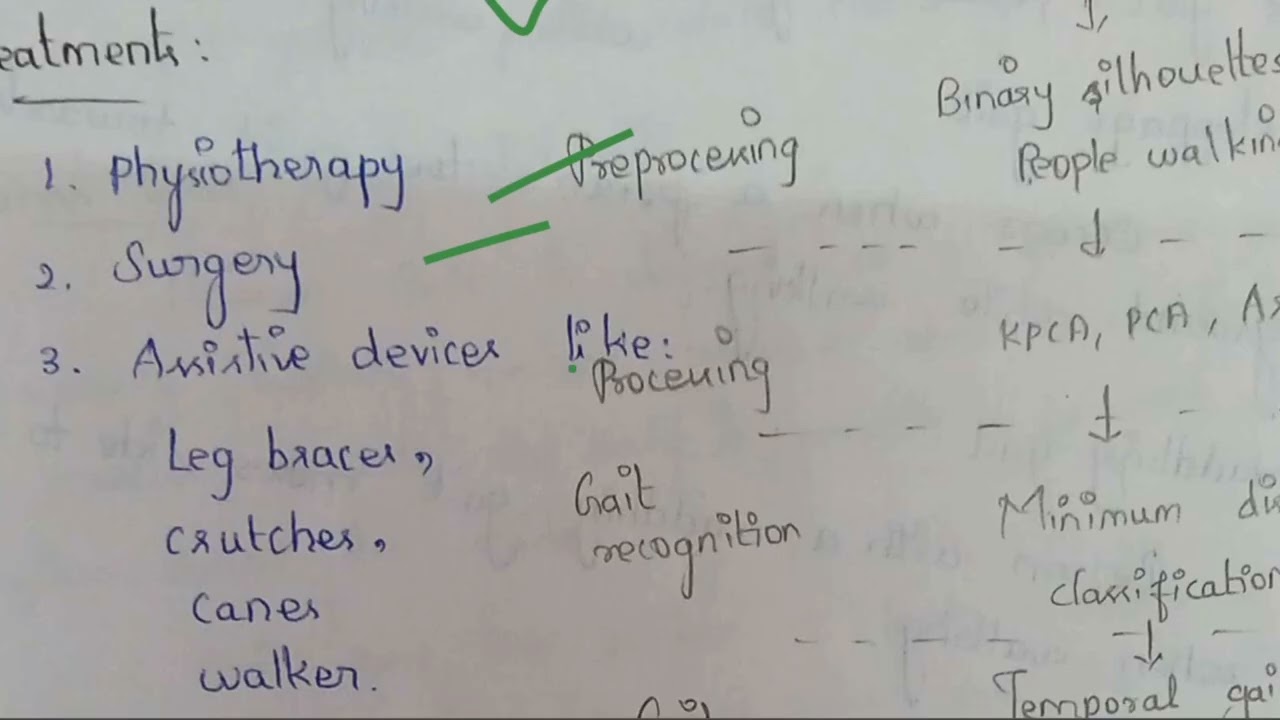 eatments:
1. Physiotherapy
2. Surgery
3. Assistive devices like:
Leg braces,
crutches,
canes
walker.
Preprocessing
Processing
Gait
recognition
Binary silhouettes
People walkin
KPCA, PCA,
Minimum
classification
Temporal gai